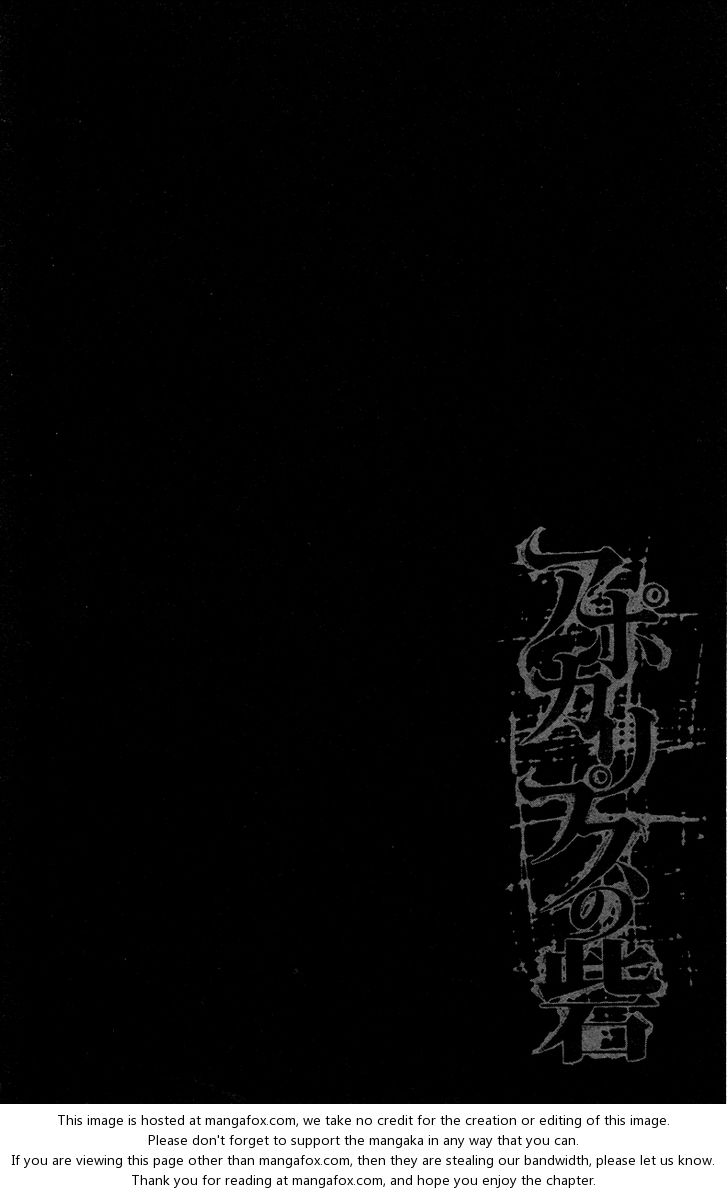 アポカリプスの砦
This image is hosted at mangafox.com, we take no credit for the creation or editing of this image.
Please don't forget to support the mangaka in any way that you can.
If you are viewing this page other than mangafox.com, then they are stealing our bandwidth, please let us know.
Thank you for reading at mangafox.com, and hope you enjoy the chapter.